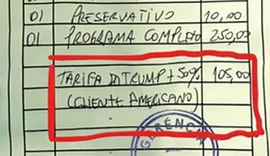 01 PRESERVATIVO 10,00
01 PROGRAMA COMPLETO 250,00
TARIFA DITRUMP + 50% 105,00
(CLIENTE AMERICANO)
GERENCIA